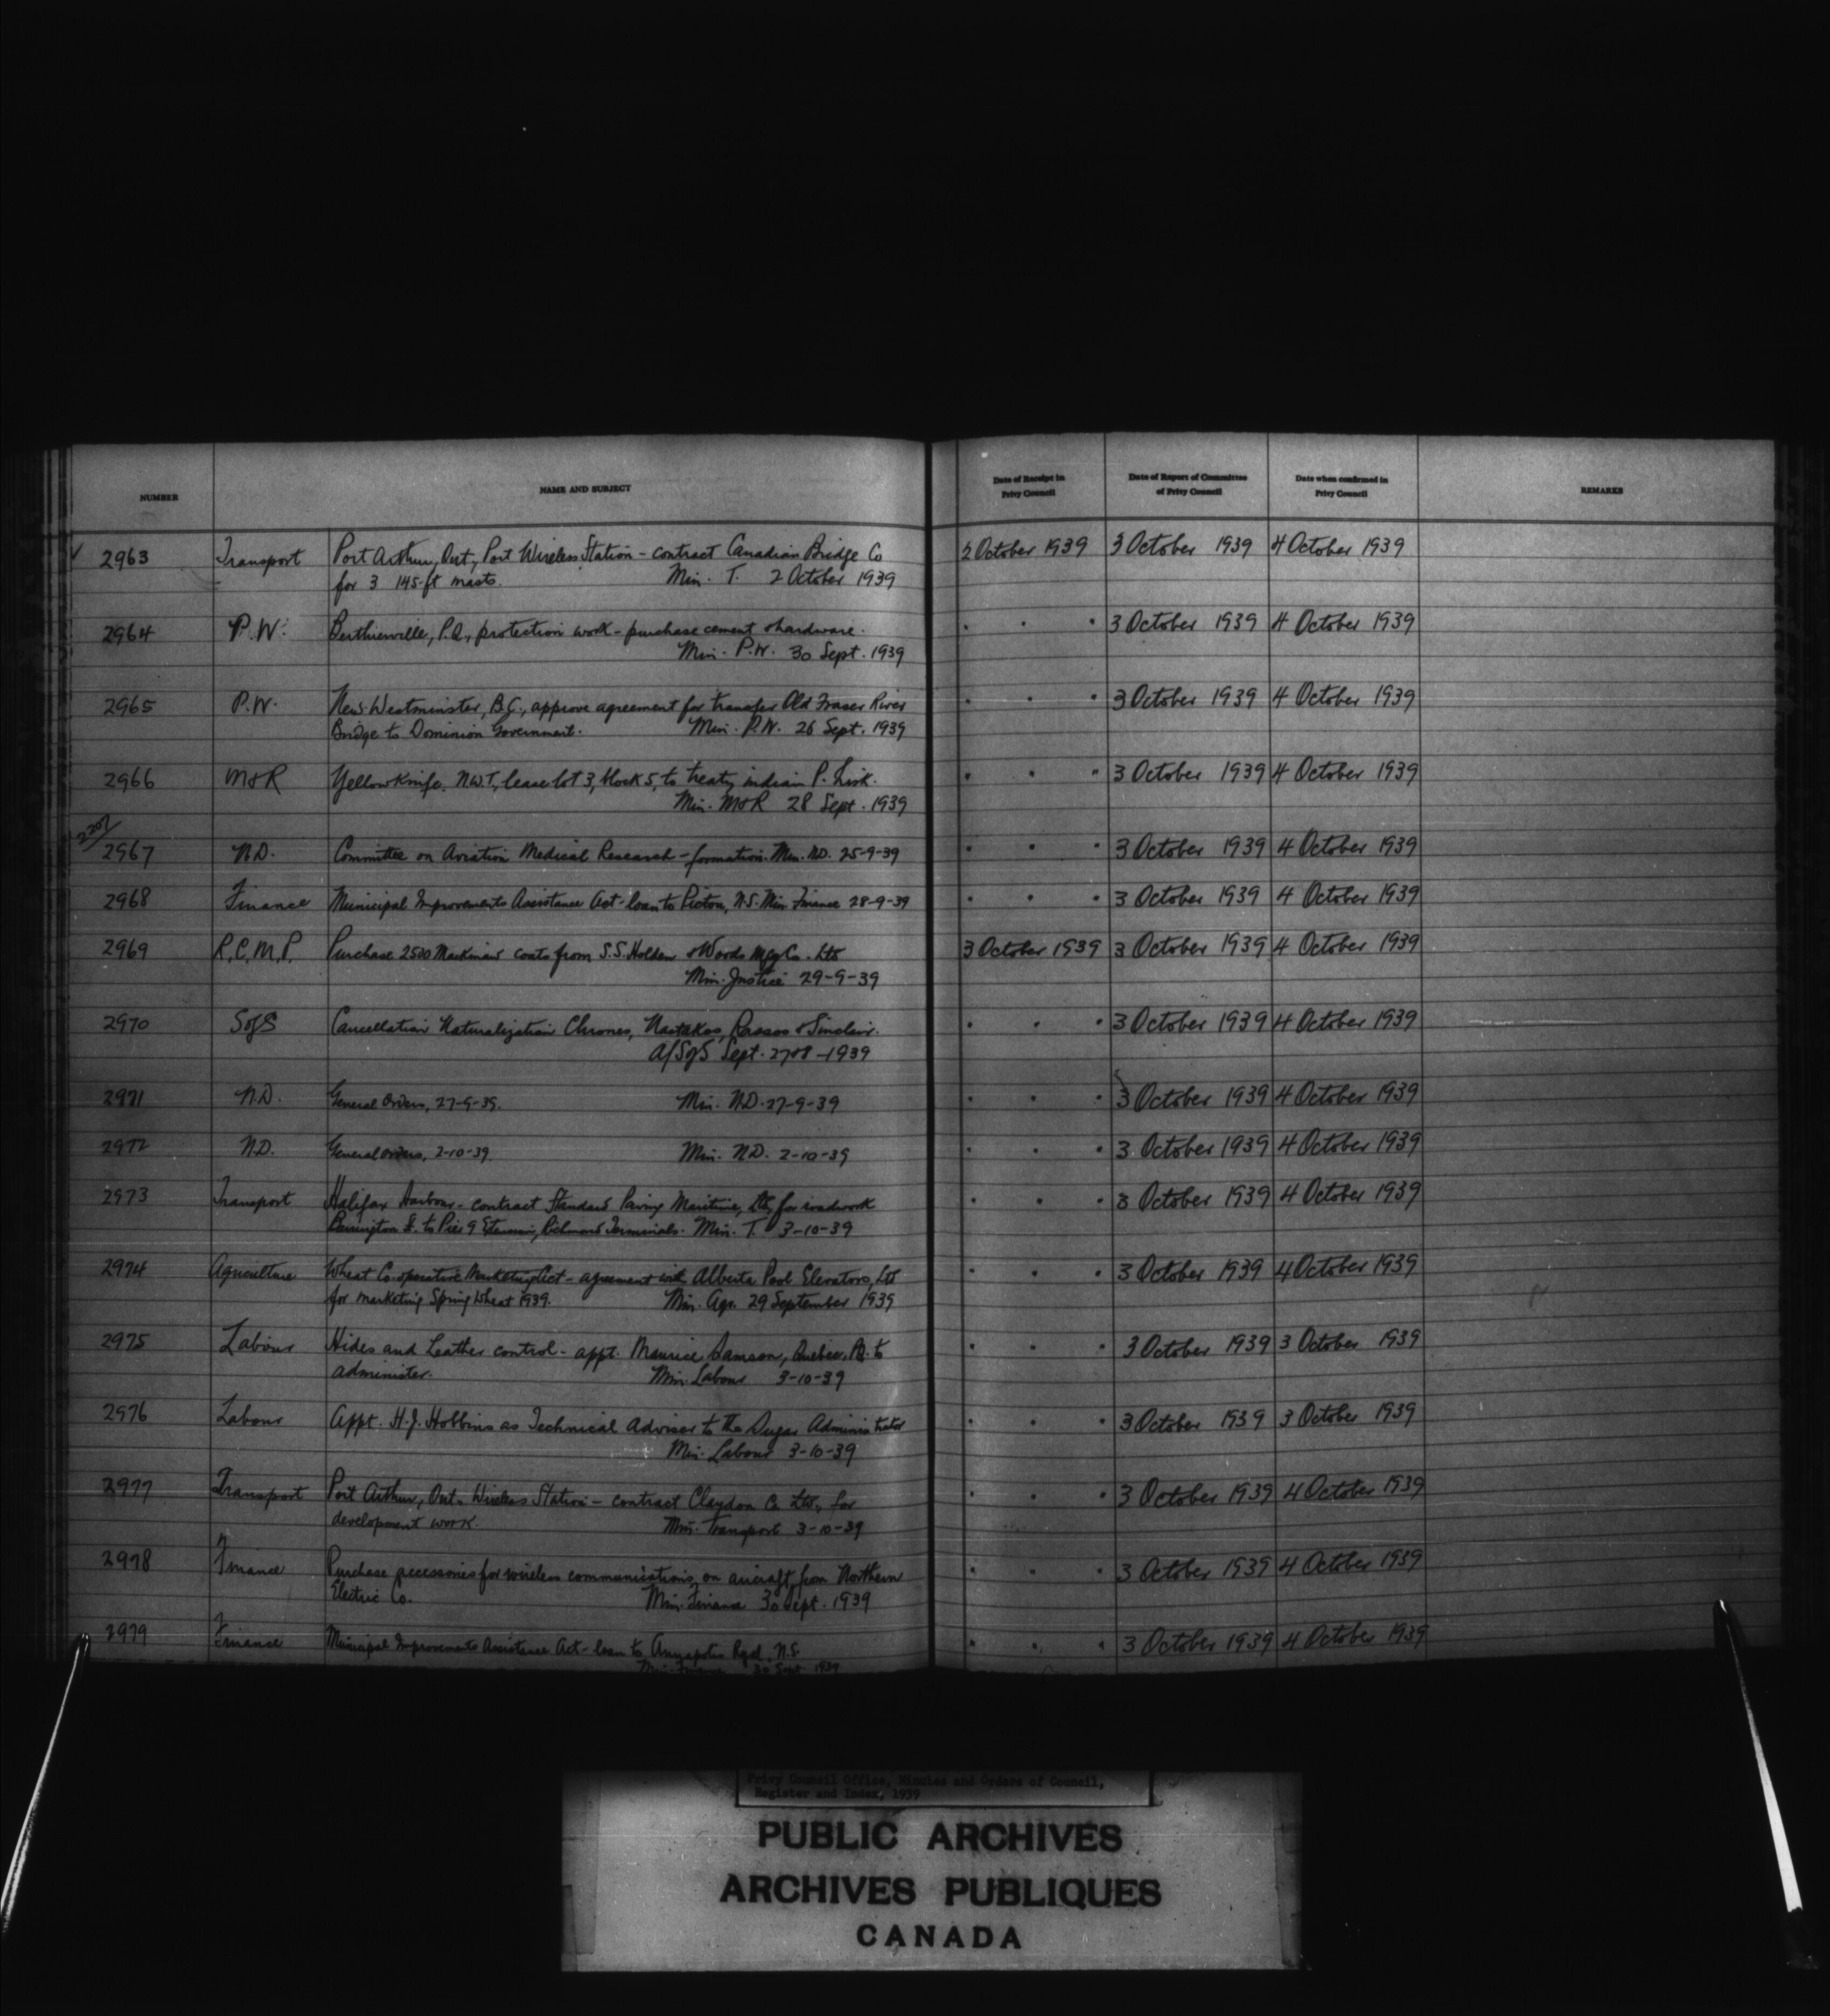 NUMBER NAME AND SUBJECT Date of Receipt in Privy Council Date of Report of Committee of Privy Council Date when confirmed in Privy Council REMARKS
✓ 2963 Transport Port Arthur, Ont., Port Wireless Station - contract Canadian Bridge Co 2 October 1939 3 October 1939 4 October 1939
for 3 145-ft masts. Min. T. 2 October 1939
2964 P.W. Berthierville, P.Q., protection work - purchase cement & hardware. " " " 3 October 1939 4 October 1939
Min. P.W. 30 Sept. 1939
2965 P.W. New Westminster, B.C., approve agreement for transfer Old Fraser River " " " 3 October 1939 4 October 1939
Bridge to Dominion Government. Min. P.W. 26 Sept. 1939
2966 M&R Yellowknife, N.W.T., lease lot 3, block 5, to treaty indian P. Lisk. " " " 3 October 1939 4 October 1939
Min. M&R 28 Sept. 1939
2207
2967 N.D. Committee on Aviation Medical Research - formation. Min. N.D. 25-9-39 " " " 3 October 1939 4 October 1939
2968 Finance Municipal Improvements Assistance Act - loan to Pictou, N.S. Min. Finance 28-9-39 " " " 3 October 1939 4 October 1939
2969 R.C.M.P. Purchase 2500 Mackinaw coats from S.S. Holden & Woods Mfg Co. Ltd 3 October 1939 3 October 1939 4 October 1939
Min. Justice 29-9-39
2970 S of S Cancellation Naturalization Chrones, Nastakos, Rassos & Sinclair. " " " 3 October 1939 4 October 1939
A/S of S Sept. 27&8-1939
2971 N.D. General Orders, 27-9-39. Min. N.D. 27-9-39 " " " 3 October 1939 4 October 1939
2972 N.D. General Orders, 2-10-39. Min. N.D. 2-10-39 " " " 3 October 1939 4 October 1939
2973 Transport Halifax Harbour - contract Standard Paving Maritime, Ltd, for roadwork " " " 3 October 1939 4 October 1939
Barrington St. to Pier 9 Extension, Richmond Terminals. Min. T. 3-10-39
2974 Agriculture Wheat Co-operative Marketing Act - agreement with Alberta Pool Elevators, Ltd " " " 3 October 1939 4 October 1939
for marketing Spring Wheat 1939. Min. Agr. 29 September 1939
2975 Labour Hides and Leather control - appt. Maurice Samson, Quebec, P.Q. to " " " 3 October 1939 3 October 1939
administer. Min. Labour 3-10-39
2976 Labour Appt. H.J. Hobbins as Technical Adviser to the Sugar Administrator " " " 3 October 1939 3 October 1939
Min. Labour 3-10-39
2977 Transport Port Arthur, Ont. Wireless Station - contract Claydon Co Ltd., for " " " 3 October 1939 4 October 1939
development work. Min. Transport 3-10-39
2978 Finance Purchase accessories for wireless communications on aircraft from Northern " " " 3 October 1939 4 October 1939
Electric Co. Min. Finance 30 Sept. 1939
2979 Finance Municipal Improvements Assistance Act - loan to Annapolis Royal, N.S. " " " 3 October 1939 4 October 1939
Min. Finance 30 Sept. 1939
Privy Council Office, Minutes and Orders of Council,
Register and Index, 1939
PUBLIC ARCHIVES
ARCHIVES PUBLIQUES
CANADA